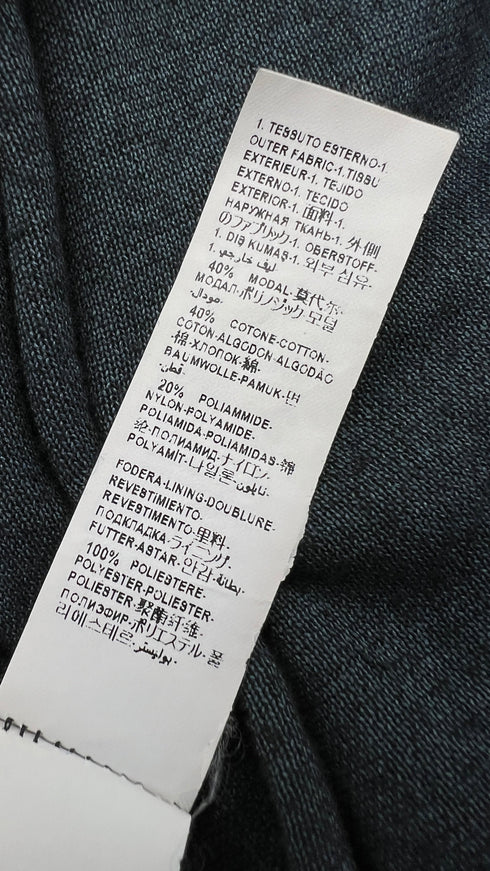 1. TESSUTO ESTERNO-1.
OUTER FABRIC-1.TISSU
EXTERIEUR-1. TEJIDO
EXTERNO-1. TECIDO
EXTERIOR-1. 面料-1.
НАРУЖНАЯ ТКАНЬ-1. 外側
のファブリック-1. OBERSTOFF-
1. DIŞ KUMAŞ-1. 외부 섬유-
1. ليف خارجي
40% MODAL-莫代尔-
МОДАЛ-ポリノジック-모달
-مودال
40% COTONE-COTTON-
COTON-ALGODON-ALGODÃO
-棉-ХЛОПОК-綿-
BAUMWOLLE-PAMUK-면
-قطن
20% POLIAMMIDE-
NYLON-POLYAMIDE-
POLIAMIDA-POLIAMIDAS-锦
纶-ПОЛИАМИД-ナイロン-
POLYAMİT-나일론-نايلون
FODERA-LINING-DOUBLURE-
REVESTIMIENTO-
REVESTIMENTO-里料-
ПОДКЛАДКА-ライニング-
FUTTER-ASTAR-안감-بطانة
100% POLIESTERE-
POLYESTER-POLIESTER-
POLIÉSTER-聚酯纤维-
ПОЛИЭФИР-ポリエステル-폴
리에스테르-بوليستر